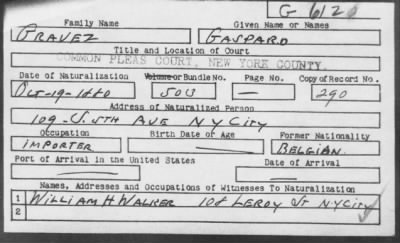 G 612
Family Name Given Name or Names
GRAVEZ GASPARD
Title and Location of Court
COMMON PLEAS COURT, NEW YORK COUNTY.
Date of Naturalization Volume or Bundle No. Page No. Copy of Record No.
Oct-19-1880 503 — 290
Address of Naturalized Person
109 - S. 5TH AVE N Y CITY
Occupation Birth Date or Age Former Nationality
IMPORTER — BELGIAN
Port of Arrival in the United States Date of Arrival
— —
Names, Addresses and Occupations of Witnesses To Naturalization
1 WILLIAM H WALKER 108 LEROY ST N.Y CITY
2